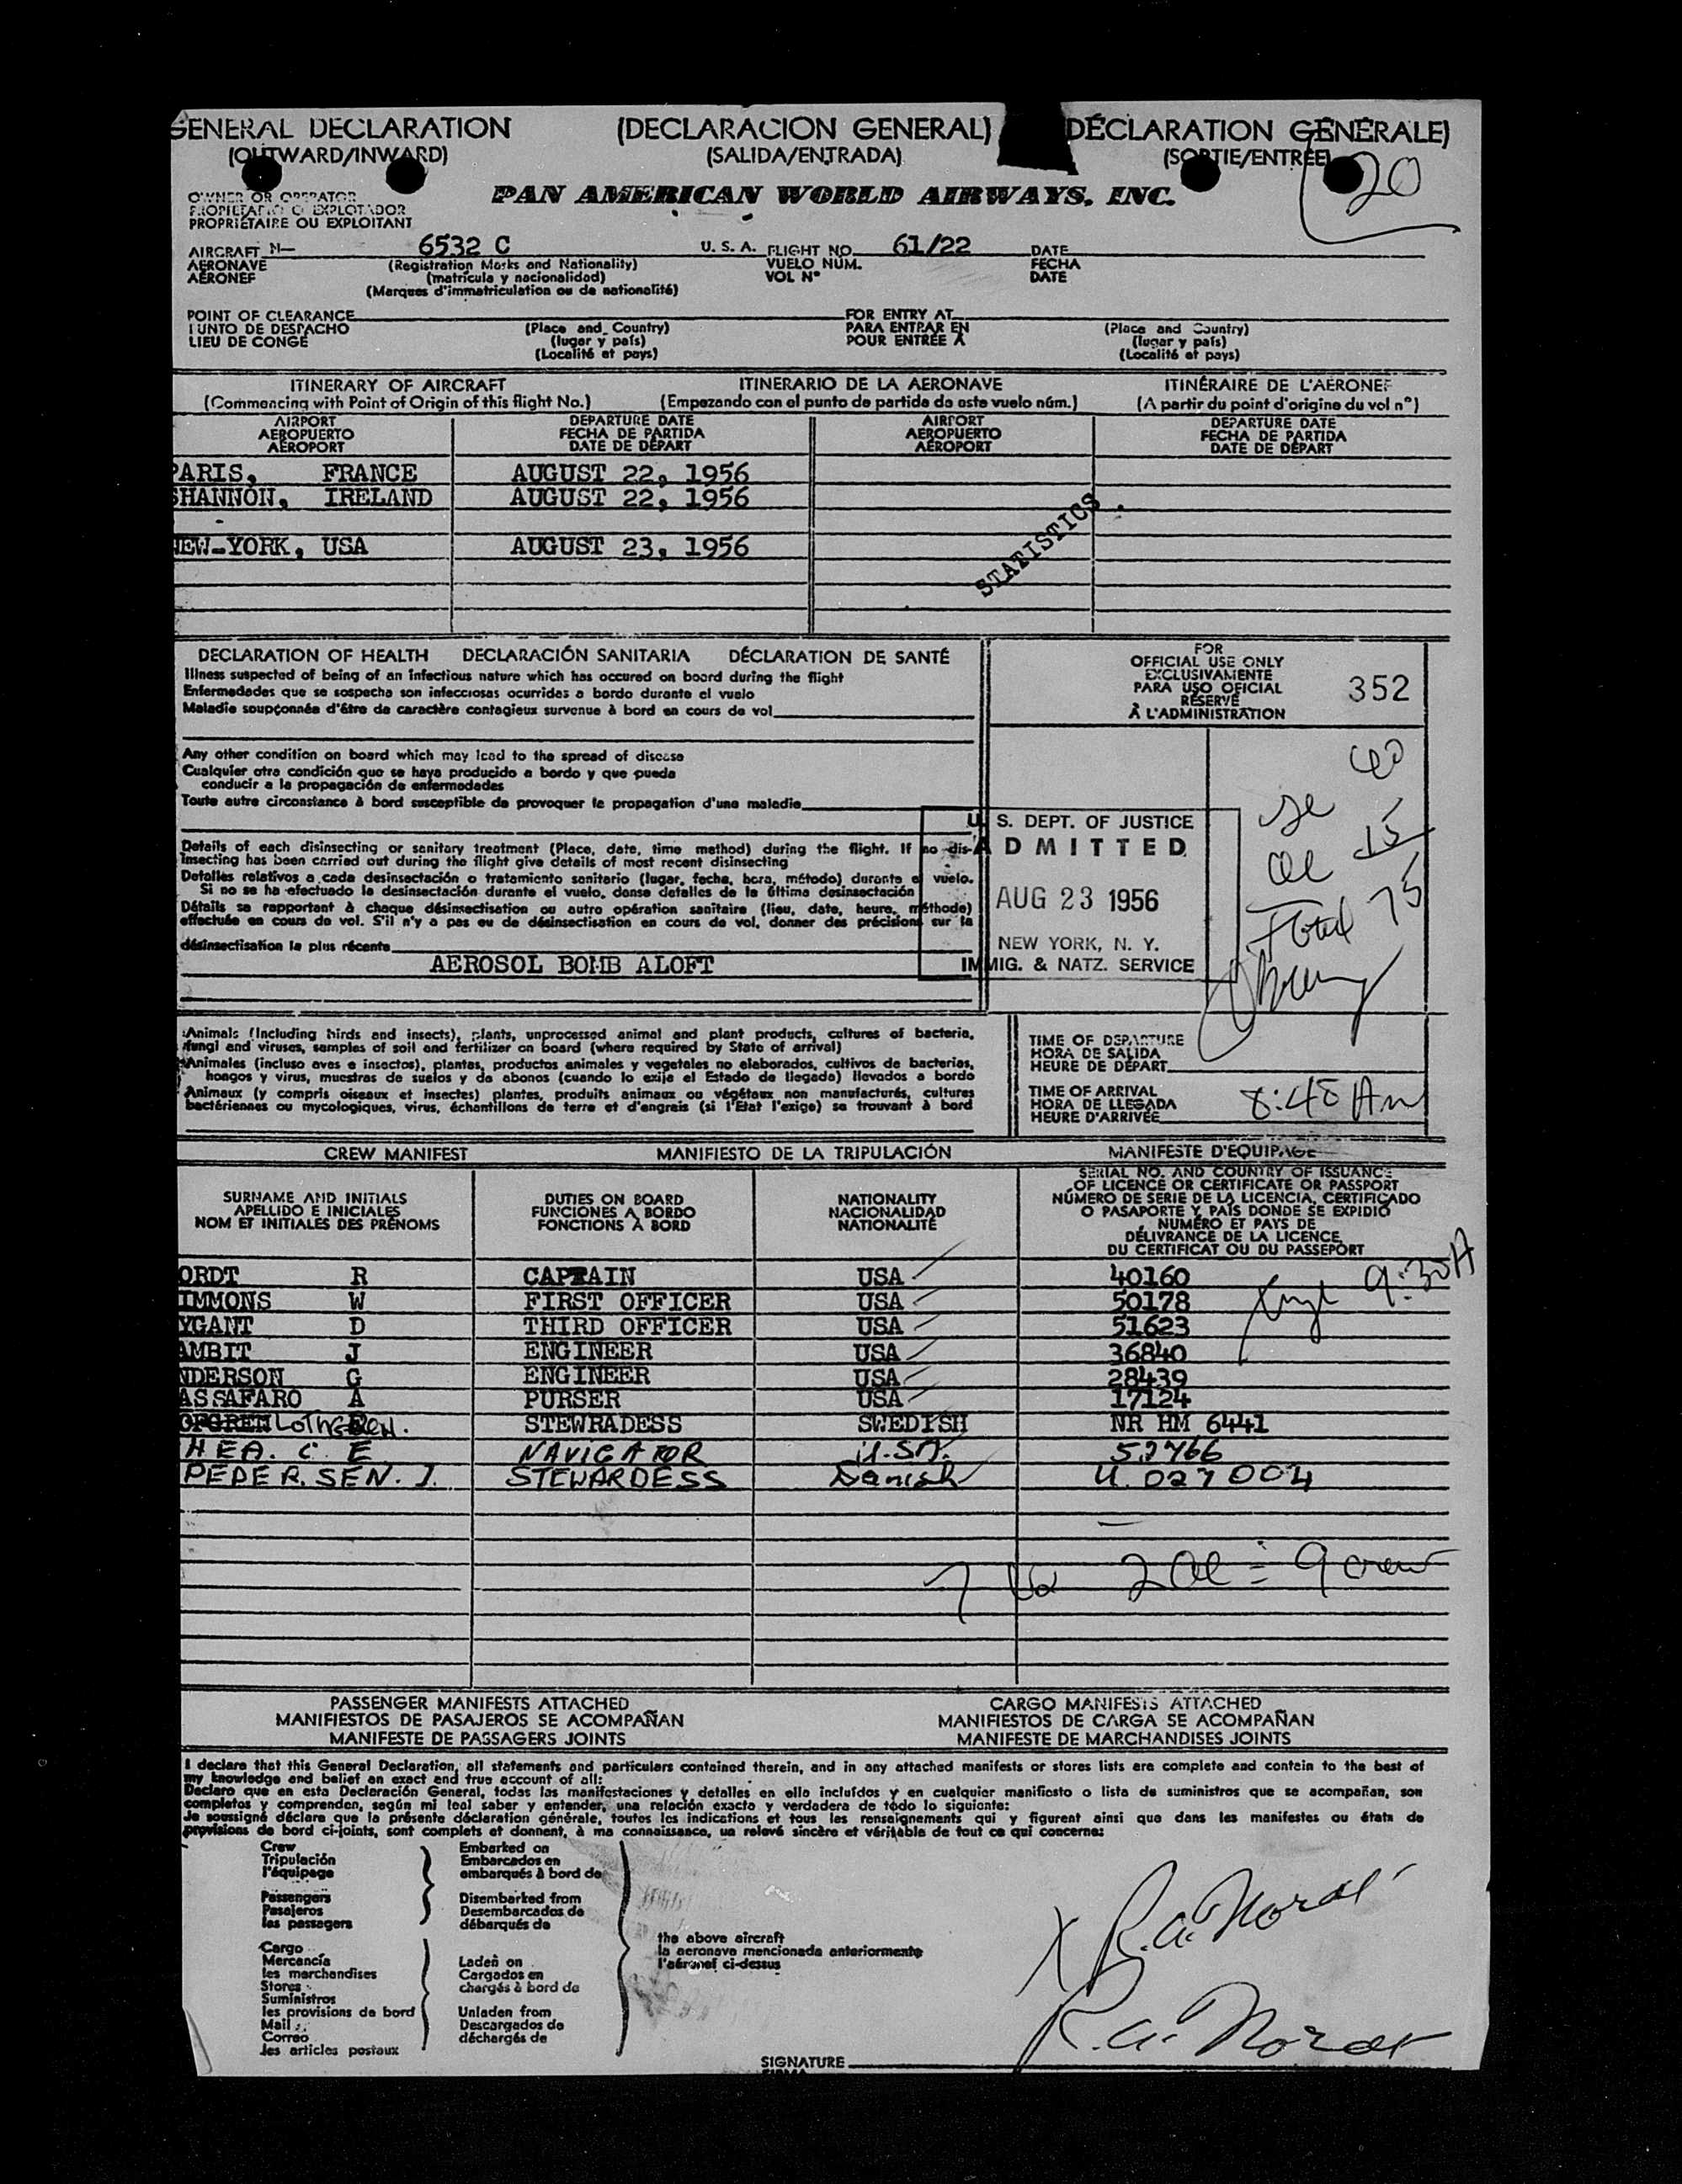 GENERAL DECLARATION (DECLARACION GENERAL) (DÉCLARATION GÉNÉRALE)
(OUTWARD/INWARD) (SALIDA/ENTRADA) (SORTIE/ENTRÉE)
20
OWNER OR OPERATOR
PROPIETARIO O EXPLOTADOR
PROPRIÉTAIRE OU EXPLOITANT
PAN AMERICAN WORLD AIRWAYS, INC.
AIRCRAFT N— 6532 C U. S. A. FLIGHT NO. 61/22 DATE
AERONAVE (Registration Marks and Nationality) VUELO NÚM. FECHA
AÉRONEF (matrícula y nacionalidad) VOL N° DATE
(Marques d'immatriculation ou de nationalité)
POINT OF CLEARANCE FOR ENTRY AT
PUNTO DE DESPACHO (Place and Country) PARA ENTRAR EN (Place and Country)
LIEU DE CONGÉ (lugar y país) POUR ENTRÉE À (lugar y país)
(Localité et pays) (Localité et pays)
ITINERARY OF AIRCRAFT ITINERARIO DE LA AERONAVE ITINÉRAIRE DE L'AÉRONEF
(Commencing with Point of Origin of this flight No.) (Empezando con el punto de partida de este vuelo núm.) (A partir du point d'origine du vol n°)
AIRPORT DEPARTURE DATE AIRPORT DEPARTURE DATE
AEROPUERTO FECHA DE PARTIDA AEROPUERTO FECHA DE PARTIDA
AÉROPORT DATE DE DÉPART AÉROPORT DATE DE DÉPART
PARIS, FRANCE AUGUST 22, 1956
SHANNON, IRELAND AUGUST 22, 1956
NEW-YORK, USA AUGUST 23, 1956
STATISTICS
DECLARATION OF HEALTH DECLARACIÓN SANITARIA DÉCLARATION DE SANTÉ
Illness suspected of being of an infectious nature which has occured on board during the flight
Enfermedades que se sospecha son infecciosas ocurridas a bordo durante el vuelo
Maladie soupçonnée d'être de caractère contagieux survenue à bord en cours de vol
FOR
OFFICIAL USE ONLY
EXCLUSIVAMENTE
PARA USO OFICIAL
RÉSERVÉ
À L'ADMINISTRATION
352
Any other condition on board which may lead to the spread of disease
Cualquier otra condición que se haya producido a bordo y que pueda
conducir a la propagación de enfermedades
Toute autre circonstance à bord susceptible de provoquer le propagation d'une maladie
60
15
Total 75
Details of each disinsecting or sanitary treatment (Place, date, time method) during the flight. If no dis-
insecting has been carried out during the flight give details of most recent disinsecting
Detalles relativos a cada desinsectación o tratamiento sanitario (lugar, fecha, hora, método) durante el vuelo.
Si no se ha efectuado la desinsectación durante el vuelo, danse detalles de la última desinsectación
Détails se rapportant à chaque désinsectisation ou autre opération sanitaire (lieu, date, heure, méthode)
effectuée en cours de vol. S'il n'y a pas eu de désinsectisation en cours de vol, donner des précisions sur la
désinsectisation la plus récente
AEROSOL BOMB ALOFT
U. S. DEPT. OF JUSTICE
ADMITTED
AUG 23 1956
NEW YORK, N. Y.
IMMIG. & NATZ. SERVICE
Animals (Including birds and insects), plants, unprocessed animal and plant products, cultures of bacteria,
fungi and viruses, samples of soil and fertilizer on board (where required by State of arrival)
Animales (incluso aves e insectos), plantas, productos animales y vegetales no elaborados, cultivos de bacterias,
hongos y virus, muestras de suelos y de abonos (cuando lo exije el Estado de llegada) llevados a bordo
Animaux (y compris oiseaux et insectes) plantes, produits animaux ou végétaux non manufacturés, cultures
bactériennes ou mycologiques, virus, échantillons de terre et d'engrais (si l'Etat l'exige) se trouvant à bord
TIME OF DEPARTURE
HORA DE SALIDA
HEURE DE DÉPART
TIME OF ARRIVAL
HORA DE LLEGADA
HEURE D'ARRIVÉE
8:45 AM
CREW MANIFEST MANIFIESTO DE LA TRIPULACIÓN MANIFESTE D'ÉQUIPAGE
SURNAME AND INITIALS DUTIES ON BOARD NATIONALITY SERIAL NO. AND COUNTRY OF ISSUANCE
APELLIDO E INICIALES FUNCIONES A BORDO NACIONALIDAD OF LICENCE OR CERTIFICATE OR PASSPORT
NOM ET INITIALES DES PRÉNOMS FONCTIONS À BORD NATIONALITÉ NÚMERO DE SERIE DE LA LICENCIA, CERTIFICADO
O PASAPORTE Y PAÍS DONDE SE EXPIDIÓ
NUMÉRO ET PAYS DE
DÉLIVRANCE DE LA LICENCE,
DU CERTIFICAT OU DU PASSEPORT
ORDT R CAPTAIN USA 40160 9:30A
IMMONS W FIRST OFFICER USA 50178
YGANT D THIRD OFFICER USA 51623
AMBIT J ENGINEER USA 36840
NDERSON G ENGINEER USA 28439
ASSAFARO A PURSER USA 17124
OFGREN LOTHGREN. STEWRADESS SWEDISH NR HM 6441
HEA. C. E NAVIGATOR U.SA. 52766
PEDERSEN. J. STEWARDESS Danish U. 027004
2 al = 9 crew
PASSENGER MANIFESTS ATTACHED CARGO MANIFESTS ATTACHED
MANIFIESTOS DE PASAJEROS SE ACOMPAÑAN MANIFIESTOS DE CARGA SE ACOMPAÑAN
MANIFESTE DE PASSAGERS JOINTS MANIFESTE DE MARCHANDISES JOINTS
I declare that this General Declaration, all statements and particulars contained therein, and in any attached manifests or stores lists are complete and contain to the best of
my knowledge and belief an exact and true account of all:
Declaro que en esta Declaración General, todas las manifestaciones y detalles en ella incluídos y en cualquier manifiesto o lista de suministros que se acompañan, son
completos y comprenden, según mi leal saber y entender, una relación exacta y verdadera de todo lo siguiente:
Je soussigné déclare que la présente déclaration générale, toutes les indications et tous les renseignements qui y figurent ainsi que dans les manifestes ou états de
provisions de bord ci-joints, sont complets et donnent, à ma connaissance, un relevé sincère et véritable de tout ce qui concerne:
Crew Embarked on
Tripulación Embarcados en
l'équipage embarqués à bord de
Passengers Disembarked from
Pasajeros Desembarcados de
les passagers débarqués de
the above aircraft
la aeronave mencionada anteriormente
l'aéronef ci-dessus
Cargo
Mercancía Laden on
les marchandises Cargados en
Stores chargés à bord de
Suministros
les provisions de bord Unladen from
Mail Descargados de
Correo déchargés de
les articles postaux
X R.A. Nordt
R.A. Nordt
SIGNATURE